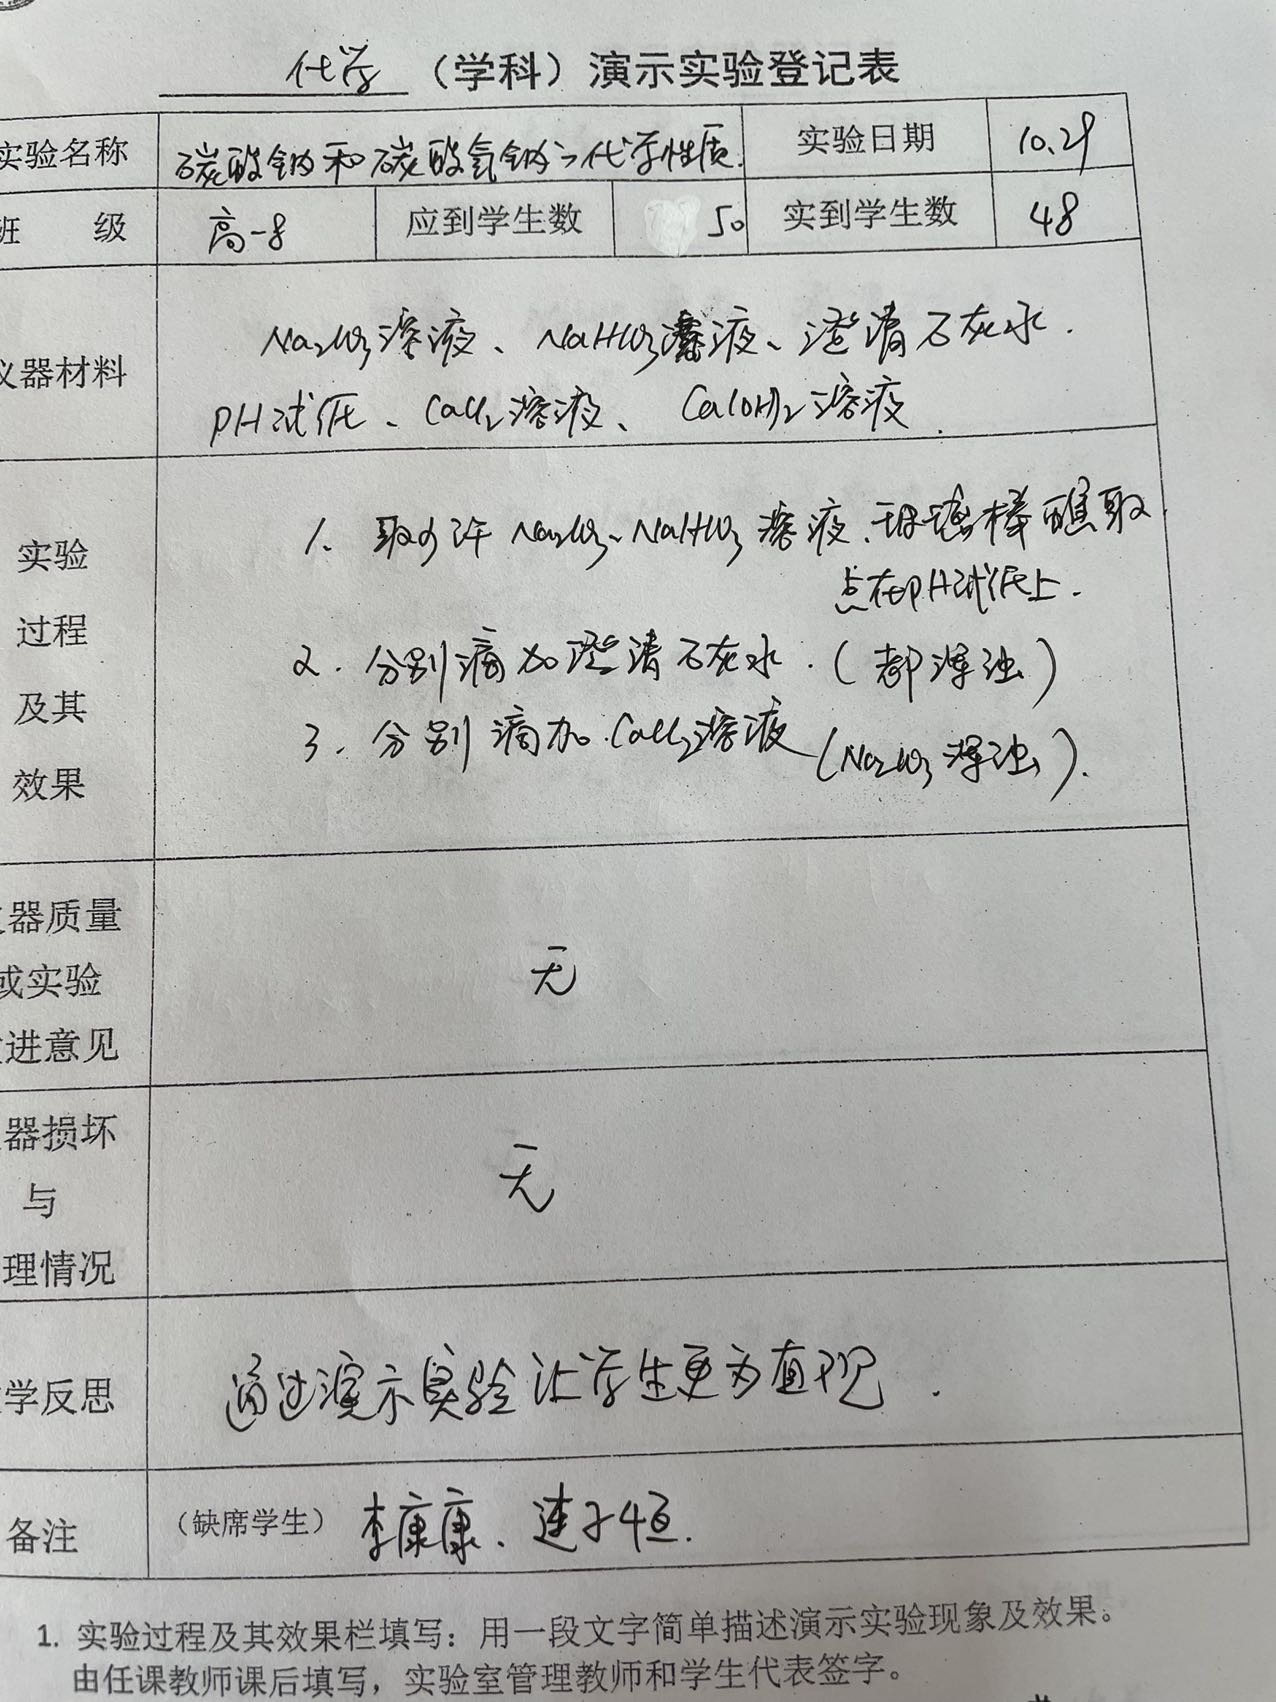 化学（学科）演示实验登记表
实验名称 碳酸钠和碳酸氢钠之化学性质. 实验日期 10.29
班 级 高一8 应到学生数 50 实到学生数 48
Na₂CO₃溶液、NaHCO₃溶液、澄清石灰水.
仪器材料
PH试纸、CaCl₂溶液、Ca(OH)₂溶液.
1. 取少许Na₂CO₃、NaHCO₃溶液.玻璃棒蘸取
点在PH试纸上.
2. 分别滴加澄清石灰水.(都浑浊)
3. 分别滴加.CaCl₂溶液(Na₂CO₃浑浊).
实验
过程
及其
效果
器质量
或实验
进意见
无
器损坏
与
理情况
无
学反思 通过演示实验让学生更为直观.
备注 （缺席学生）李康康、连子恒.
1. 实验过程及其效果栏填写：用一段文字简单描述演示实验现象及效果。
由任课教师课后填写，实验室管理教师和学生代表签字。